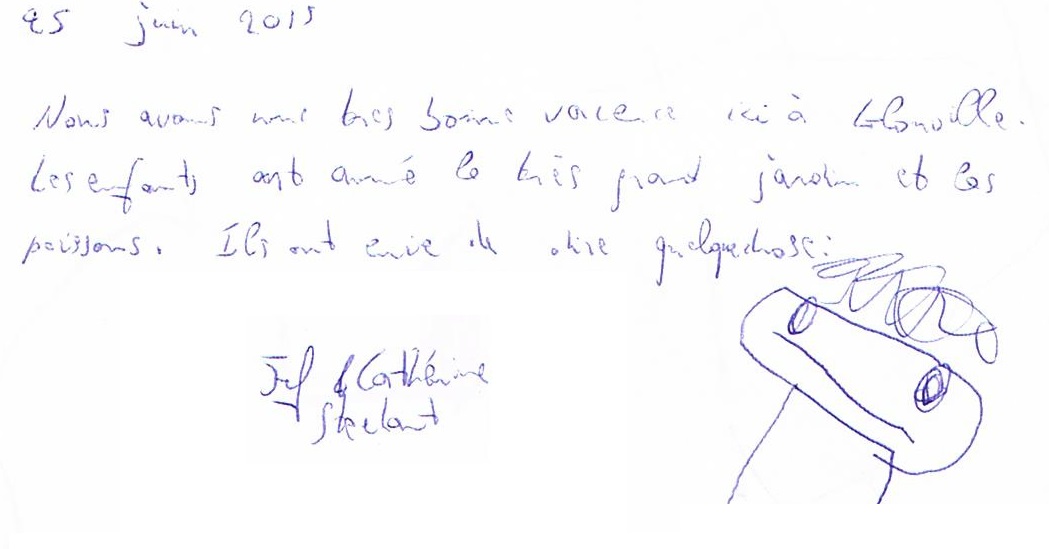 25 juin 2015
Nous avons une très bonne vacance ici à
Les enfants ont aimé le très grand jardin et les
poissons. Ils ont envie de dire quelquechose:
& Cathérine
Steelant